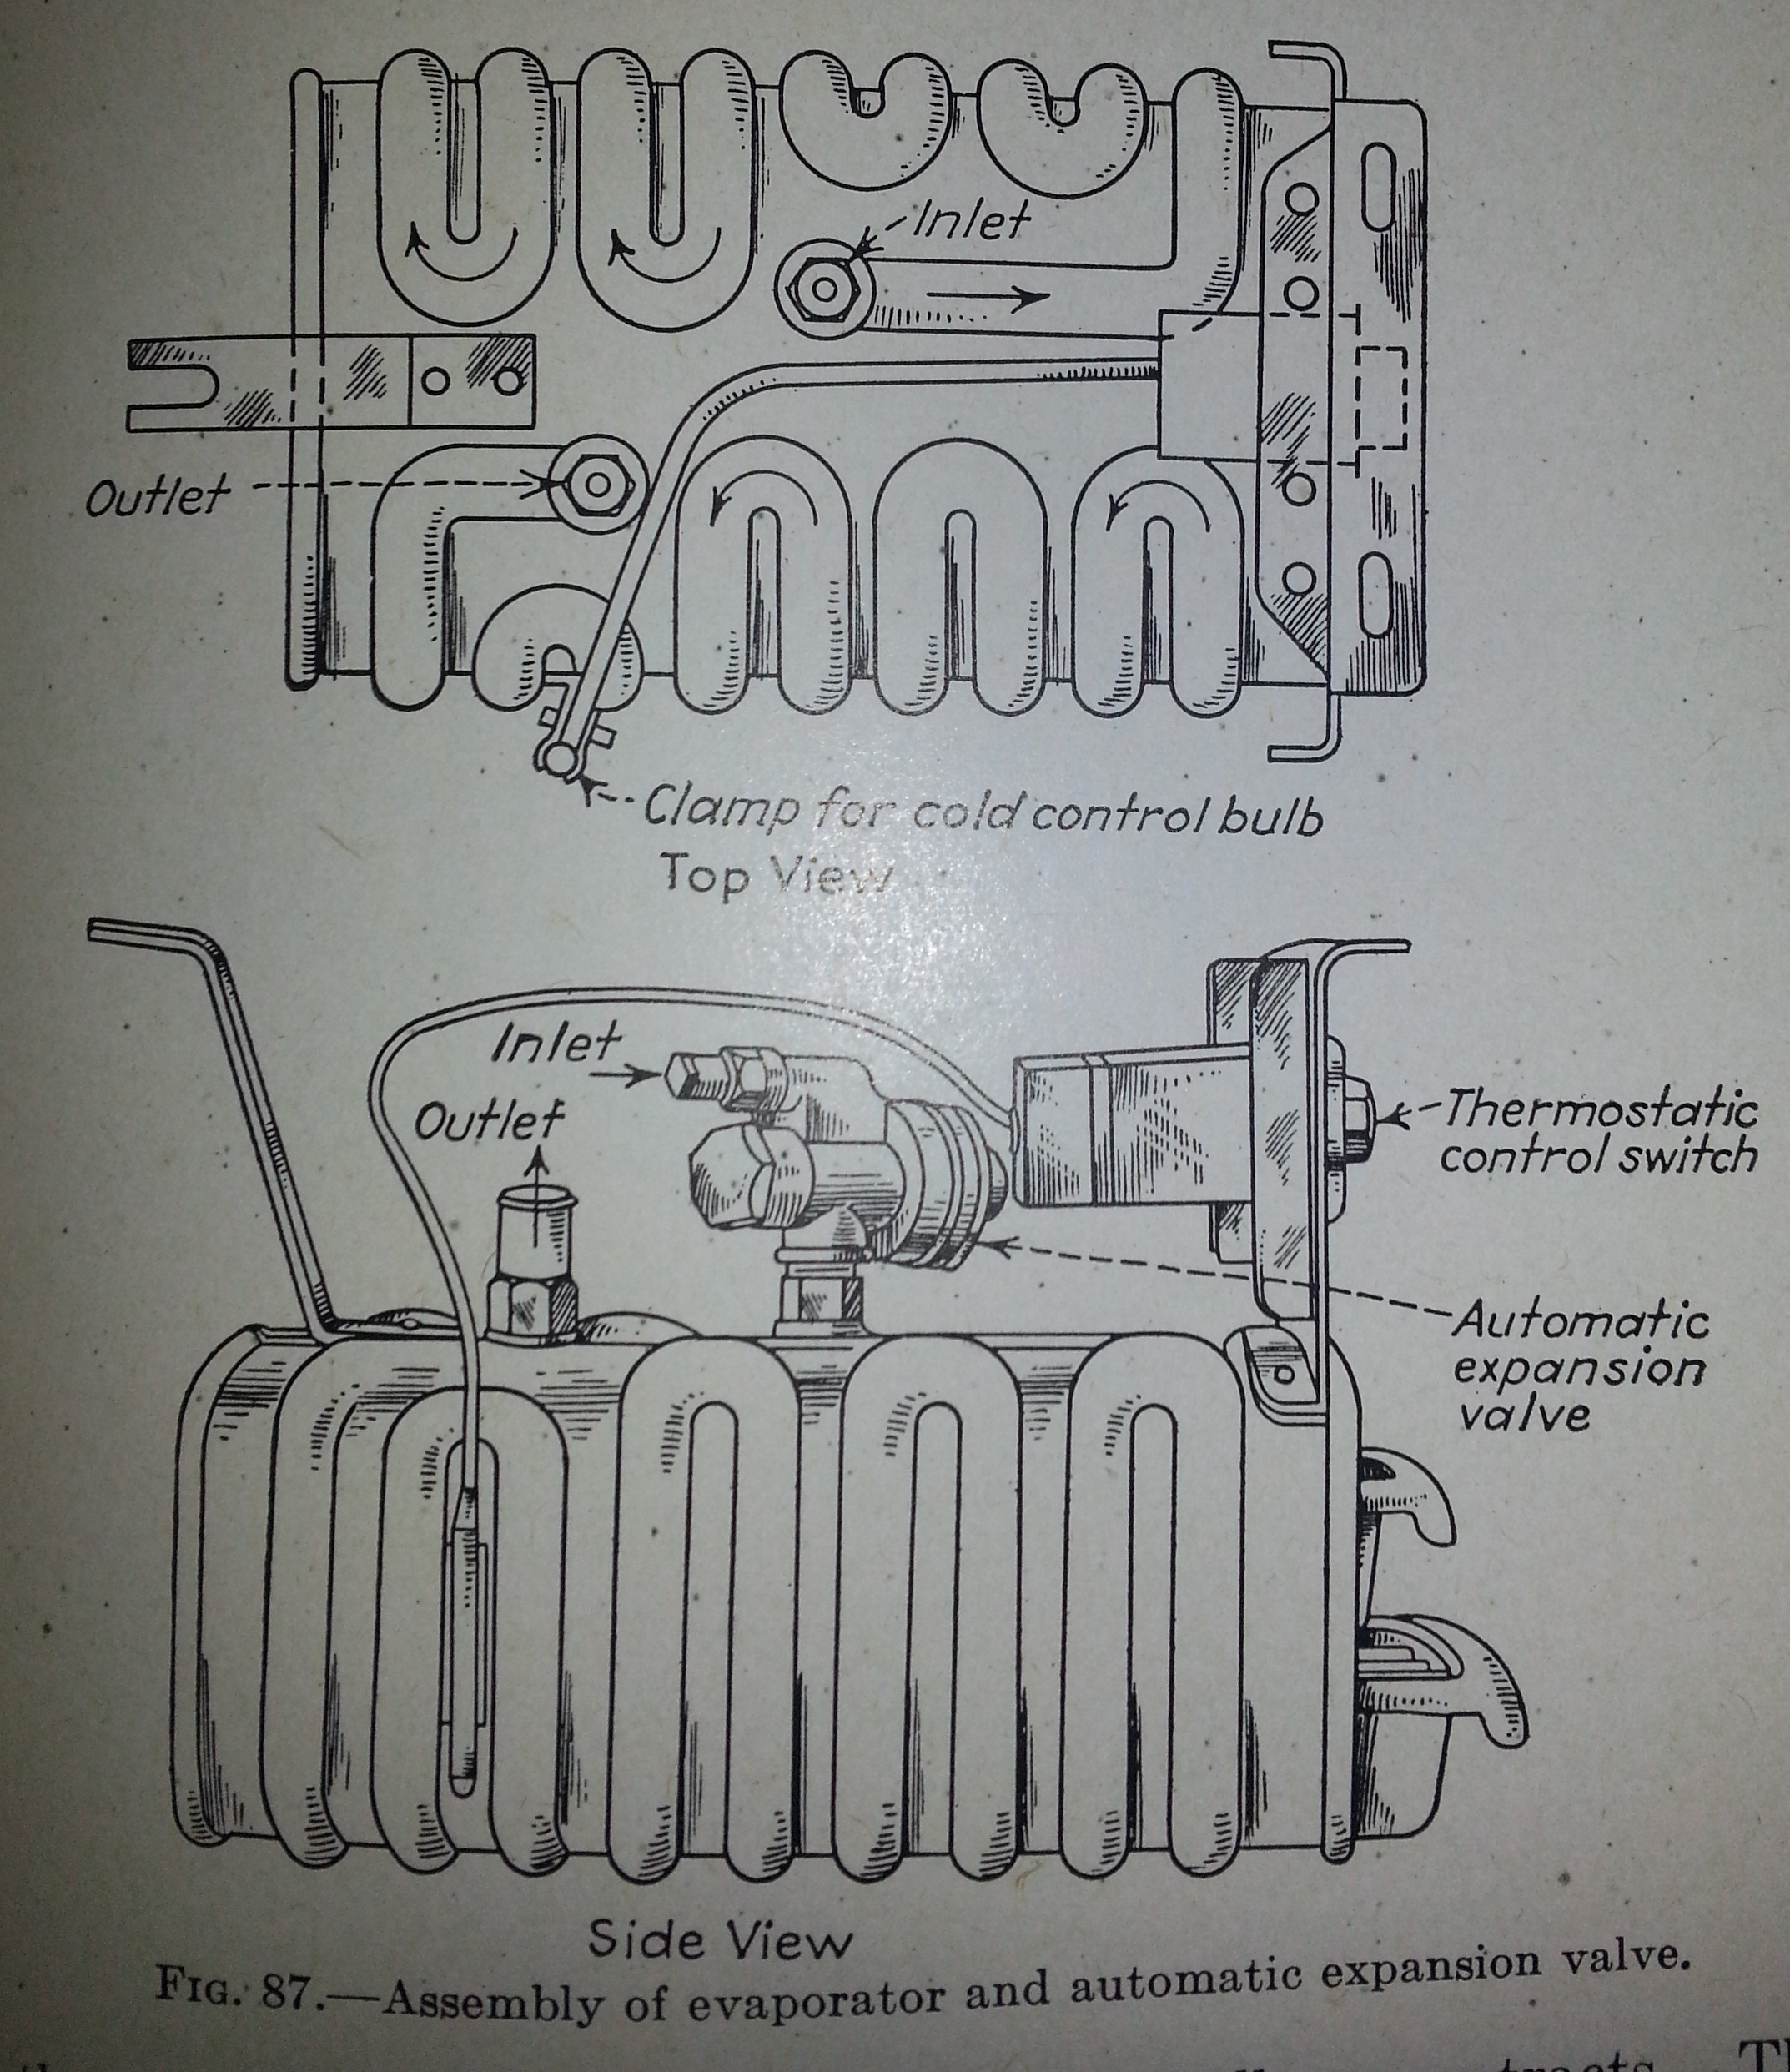 Inlet
Outlet
Clamp for cold control bulb
Top View
Inlet
Outlet
Thermostatic
control switch
Automatic
expansion
valve
Side View
FIG. 87.—Assembly of evaporator and automatic expansion valve.
tracts